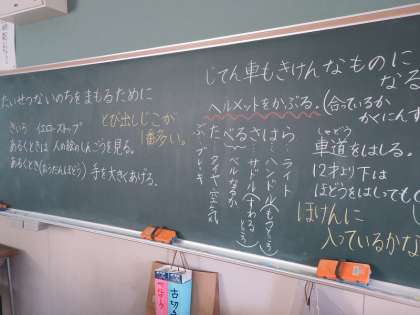 たいせつないのちをまもるために
とび出しじこが
1番多い。
きいろ イエローストップ
あるくときは 人の絵のしんごうを見る。
あるくとき(おうだんほどう) 手を大きくあげる。
じてん車もきけんなものに
なる
ヘルメットをかぶる。(合っているか
かくにんす
ぶたべるさはら
ライト
ハンドル
サドル
ベルなるか
タイヤ空気
ブレーキ
しゃどう
車道をはしる。
12才より下は
ほどうをはしっても
ほけんに
入っているかな
古切
ベルマ